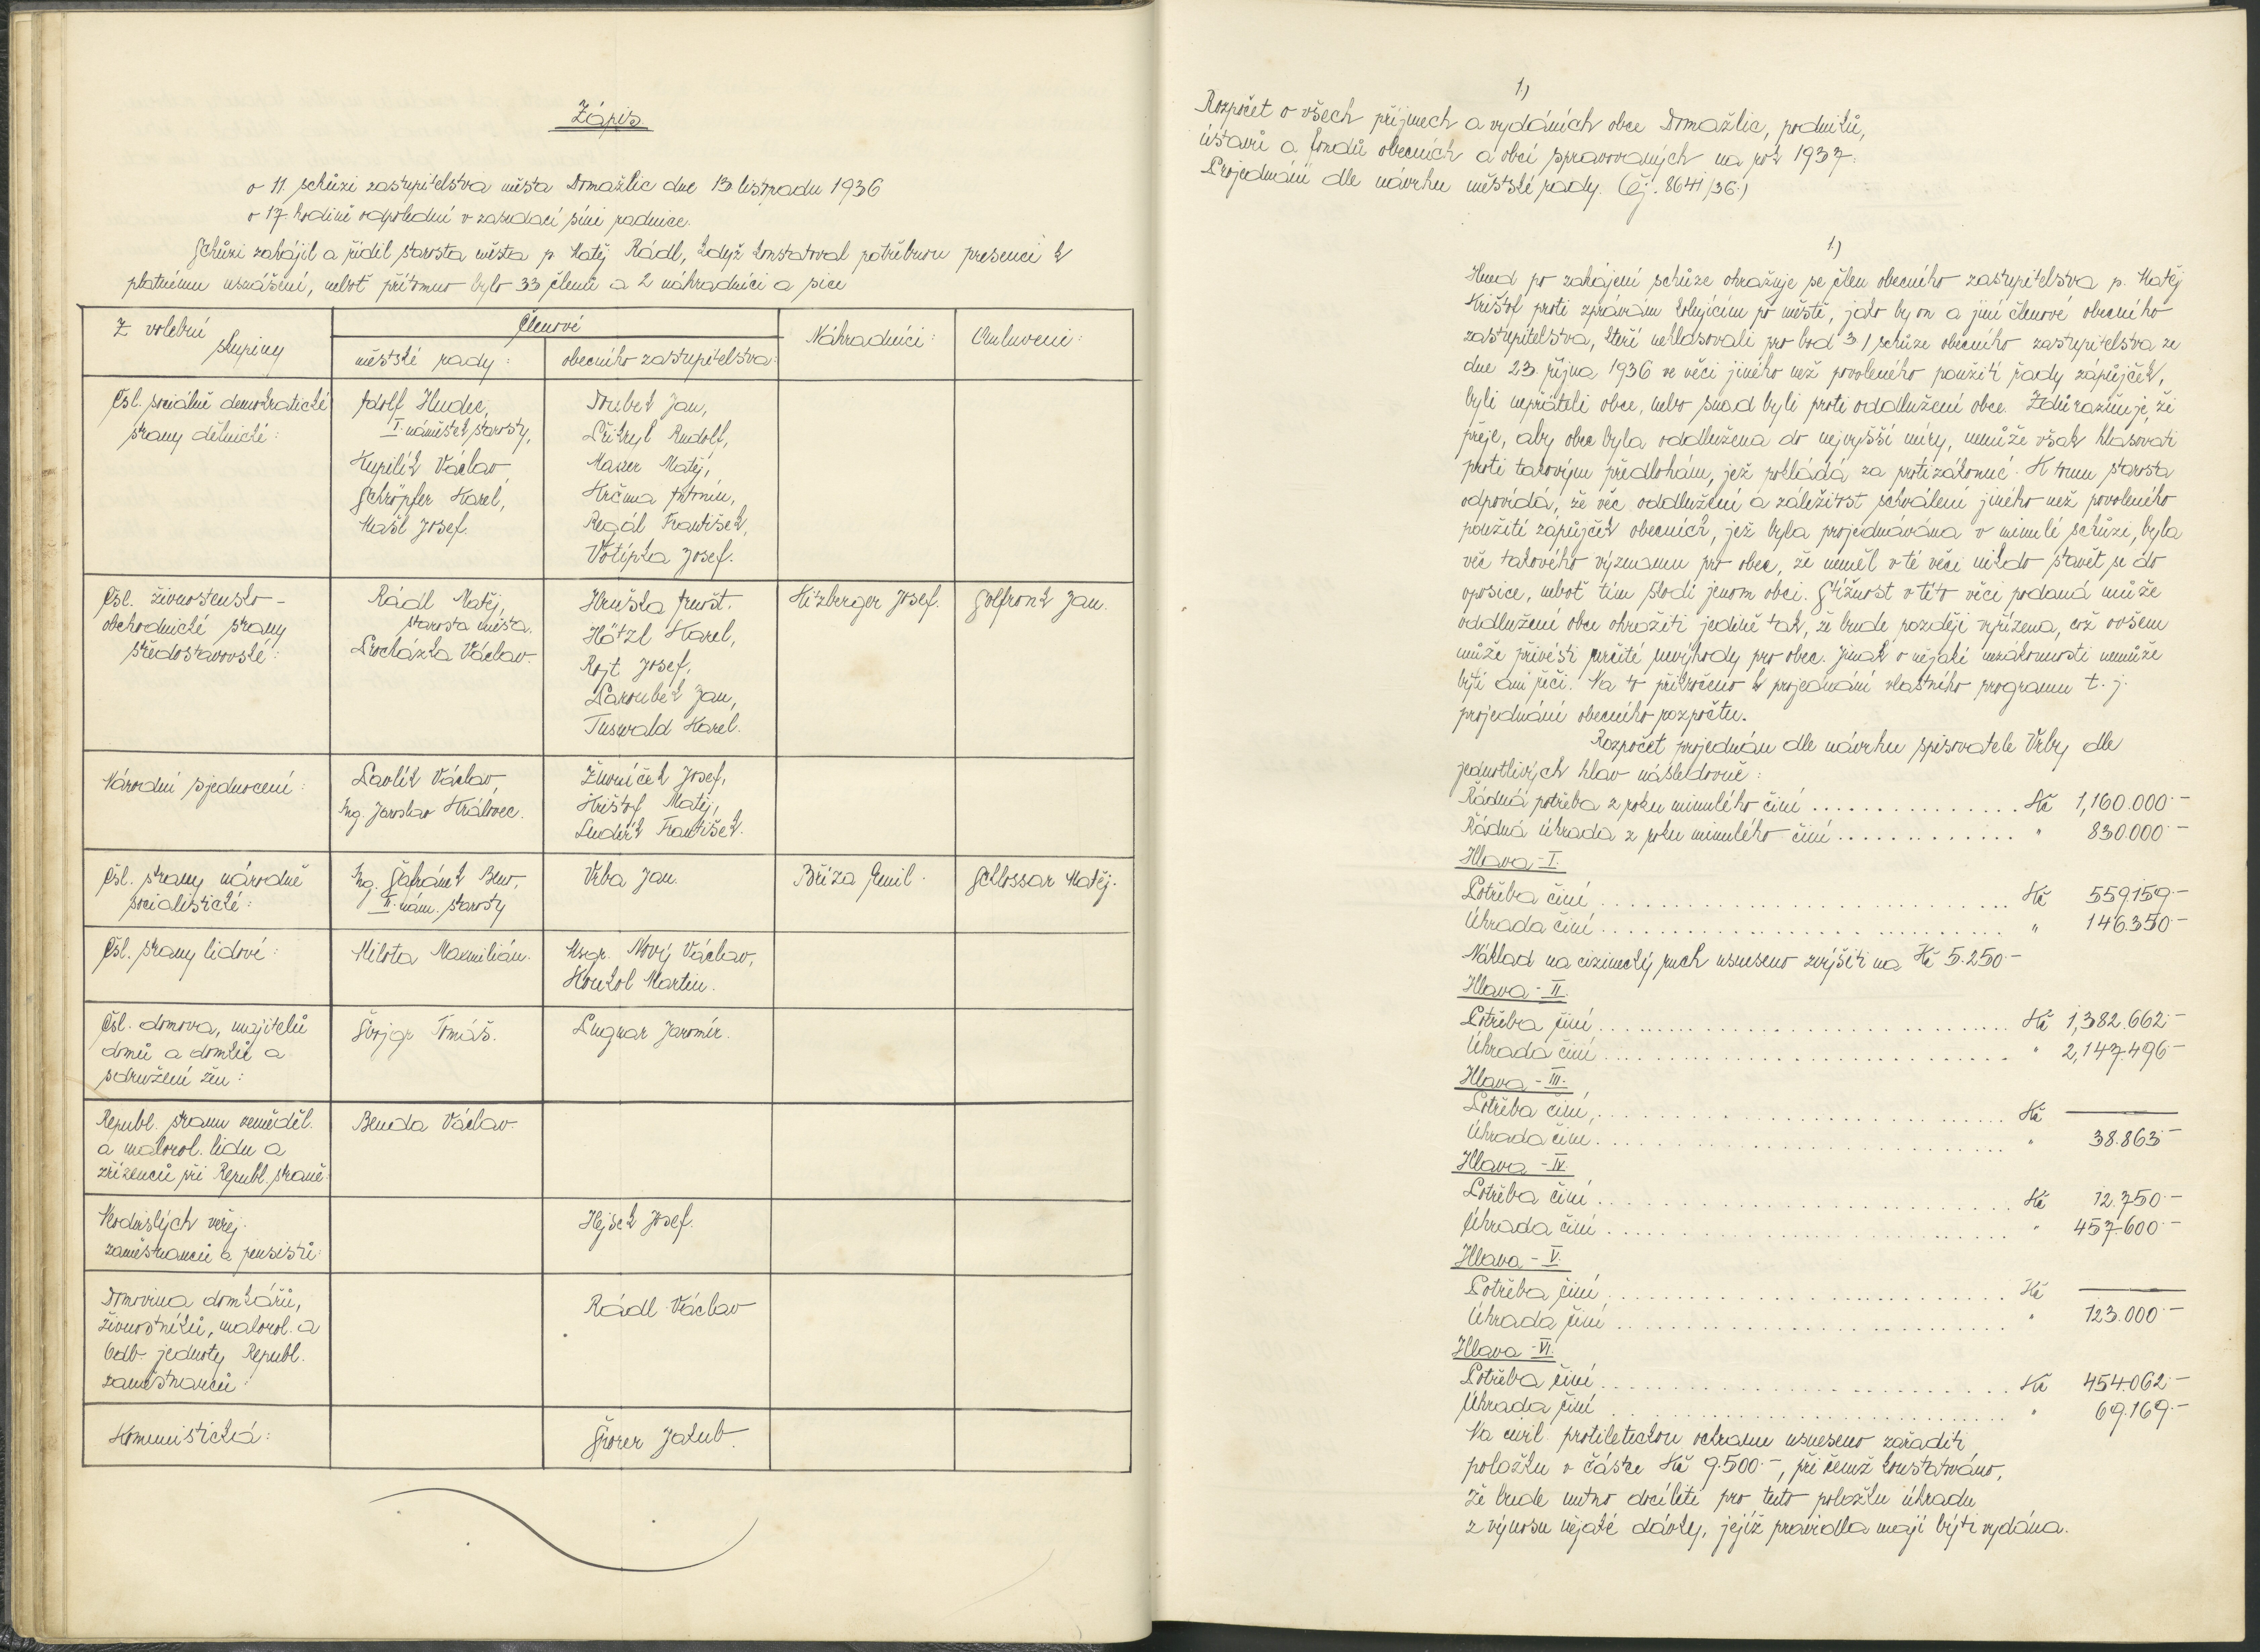 Zápis.
o 11. schůzi zastupitelstva města Domažlic dne 13. listopadu 1936
o 17 hodině odpolední v zasedací síni radnice.
Schůzi zahájil a řídil starosta města p. Matěj Rádl, když konstatoval potřebnou presenci k
platnému usnášení, neboť přítomno bylo 33 členů a 2 náhradníci a sice
Z volební skupiny
Členové
městské rady:
obecního zastupitelstva:
Náhradníci:
Omluveni:
Čsl. sociálně demokratické
strany dělnické:
Adolf Hudec,
I. náměstek starosty,
Kupilík Václav
Schröpfer Karel,
Mašl Josef.
Doubek Jan,
Přikryl Rudolf,
Maxer Matěj,
Krčma Antonín,
Regál František,
Votípka Josef.
Čsl. živnostensko-
obchodnické strany
středostavovské:
Rádl Matěj,
starosta města.
Procházka Václav.
Hruška Arnošt.
Hötzl Karel,
Rojt Josef,
Paroubek Jan,
Tuswald Karel.
Hitzberger Josef.
Solfronk Jan.
Národní sjednocení:
Pavlík Václav,
Ing. Jaroslav Královec.
Živníček Josef,
Krištof Matěj,
Ludvík František.
Čsl. strany národně
socialistické:
Ing. Šafránek Beno,
II. nám. starosty
Vrba Jan.
Bříza Emil.
Schlossar Matěj.
Čsl. strany lidové:
Milota Maxmilián.
Msgr. Nový Václav,
Konkol Martin.
Čsl. domova, majitelů
domů a domků a
sdružení žen:
Švojgr Tomáš.
Lugnar Jaromír.
Republ. stranu zeměděl.
a malorol. lidu a
zřízenců při Republ. straně:
Benda Václav.
Neodvislých veřej.
zaměstnanců a pensistů:
Hejsek Josef.
Domovina domkářů,
živnostníků, malorol. a
Odb. jednoty Republ.
zaměstnanců:
Rádl Václav
Komunistická:
Šnorer Jakub.
1.)
Rozpočet o všech příjmech a vydáních obce Domažlic, podniků,
ústavů a fondů obecních a obcí spravovaných na rok 1937:
Projednání dle návrhu městské rady. (čj. 8641/36.)
1.)
Hned po zahájení schůze ohražuje se člen obecního zastupitelstva p. Matěj
Krištof proti zprávám kolujícím po městě, jako by on a jiní členové obecního
zastupitelstva, kteří nehlasovali pro bod 3./ schůze obecního zastupitelstva ze
dne 23. října 1936 ve věci jiného než povoleného použití řady zápůjček,
byli nepřáteli obce, nebo snad byli proti oddlužení obce. Zdůrazňuje, že
přeje, aby obec byla oddlužena do nejvyšší míry, nemůže však hlasovati
proti takovým předlohám, jež pokládá za protizákonné. K tomu starosta
odpovídá, že věc oddlužení a záležitost schválení jiného než povoleného
použití zápůjček obecních, jež byla projednávána v minulé schůzi, byla
věc takového významu pro obec, že neměl v té věci nikdo stavět se do
oposice, neboť tím škodí jenom obci. Stížnost v této věci podaná může
oddlužení obce ohroziti jedině tak, že bude později vyřízena, což ovšem
může přivésti určité nevýhody pro obec. Jinak o nějaké nezákonnosti nemůže
býti ani řeči. Na to přikročeno k projednání vlastního programu t. j.
projednání obecního rozpočtu.
Rozpočet projednán dle návrhu spisovatele Vrby dle
jednotlivých hlav následovně:
Řádná potřeba z roku minulého činí ............... Kč 1,160.000.-
Řádná úhrada z roku minulého činí ............. " 830.000.-
Hlava - I.
Potřeba činí ............................ Kč 559.159.-
Úhrada činí ............................ " 146.350.-
Náklad na cizinecký ruch usneseno zvýšiti na Kč 5.250.-
Hlava - II.
Potřeba činí ............................ Kč 1,382.662.-
Úhrada činí ............................ " 2,147.496.-
Hlava - III.
Potřeba činí ............................ Kč ———
Úhrada činí ............................ " 38.863.-
Hlava - IV.
Potřeba činí ............................ Kč 12.750.-
Úhrada činí ............................ " 457.600.-
Hlava - V.
Potřeba činí ............................ Kč ———
Úhrada činí ............................ " 123.000.-
Hlava - VI.
Potřeba činí ............................ Kč 454.062.-
Úhrada činí ............................ " 69.169.-
Na civil. protileteckou ochranu usneseno zařaditi
položku v částce Kč 9.500.-, při čemž konstatováno,
že bude nutno docíliti pro tuto položku úhradu
z výnosu nějaké dávky, jejíž pravidla mají býti vydána.